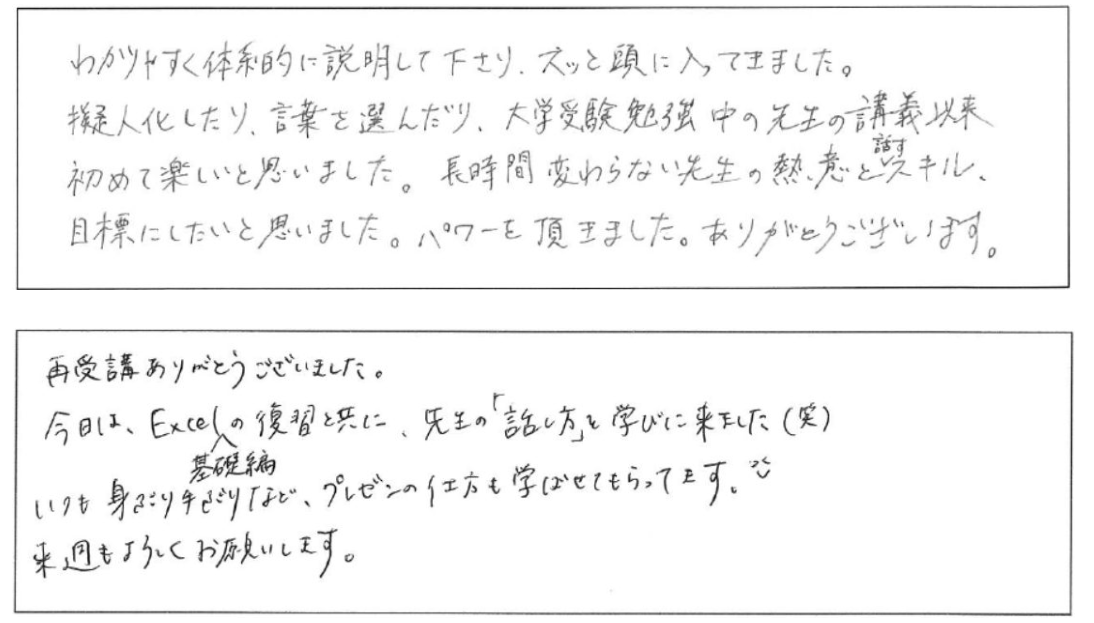 わかりやすく体系的に説明して下さり、スッと頭に入ってきました。
擬人化したり、言葉を選んだり、大学受験勉強中の先生の講義以来
初めて楽しいと思いました。長時間変わらない先生の熱意と話すスキル、
目標にしたいと思いました。パワーを頂きました。ありがとうございます。
再受講ありがとうございました。
今日は、Excel基礎編の復習と共に、先生の「話し方」を学びに来ました(笑)
いつも身ぶり手ぶりなど、プレゼンの仕方も学ばせてもらってます。
来週もよろしくお願いします。